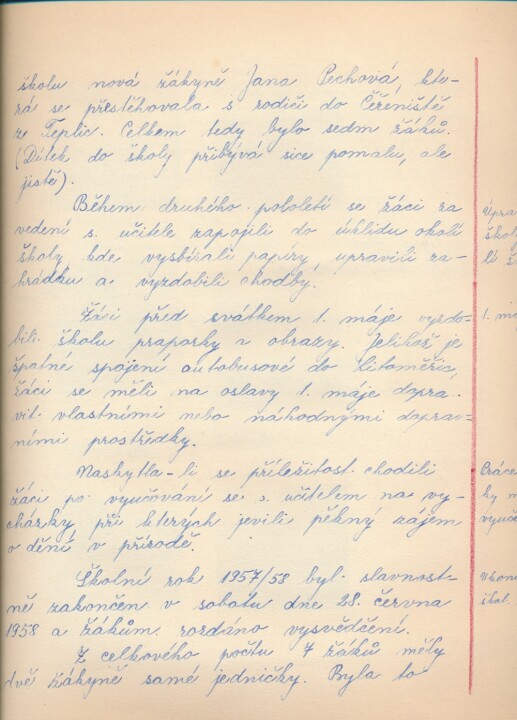 školu nová žákyně Jana Pechová, kte-
rá se přestěhovala s rodiči do Čeřeniště
z Teplic. Celkem tedy bylo sedm žáků.
(Dítek do školy přibývá sice pomalu, ale
jistě).
Během druhého pololetí se žáci za
vedení s. učitele zapojili do úklidu okolí
školy kde vysbírali papíry, upravili za-
hrádku a vyzdobili chodby.
Žáci před svátkem 1. máje vyzdo-
bili školu praporky a obrazy. Jelikož je
špatné spojení autobusové do Litoměřic,
žáci se měli na oslavy 1. máje dopra
vit vlastními nebo náhodnými doprav-
ními prostředky.
Naskytla-li se příležitost chodili
žáci po vyučování se s. učitelem na vy-
cházky při kterých jevili pěkný zájem
o dění v přírodě.
Školní rok 1957/58 byl slavnost-
ně zakončen v sobotu dne 28. června
1958 a žákům rozdáno vysvědčení.
Z celkového počtu 7 žáků měly
dvě žákyně samé jedničky. Byla to
Úpra
škol
1. má
Práce
ky m
vyuč
Ukon
škol.